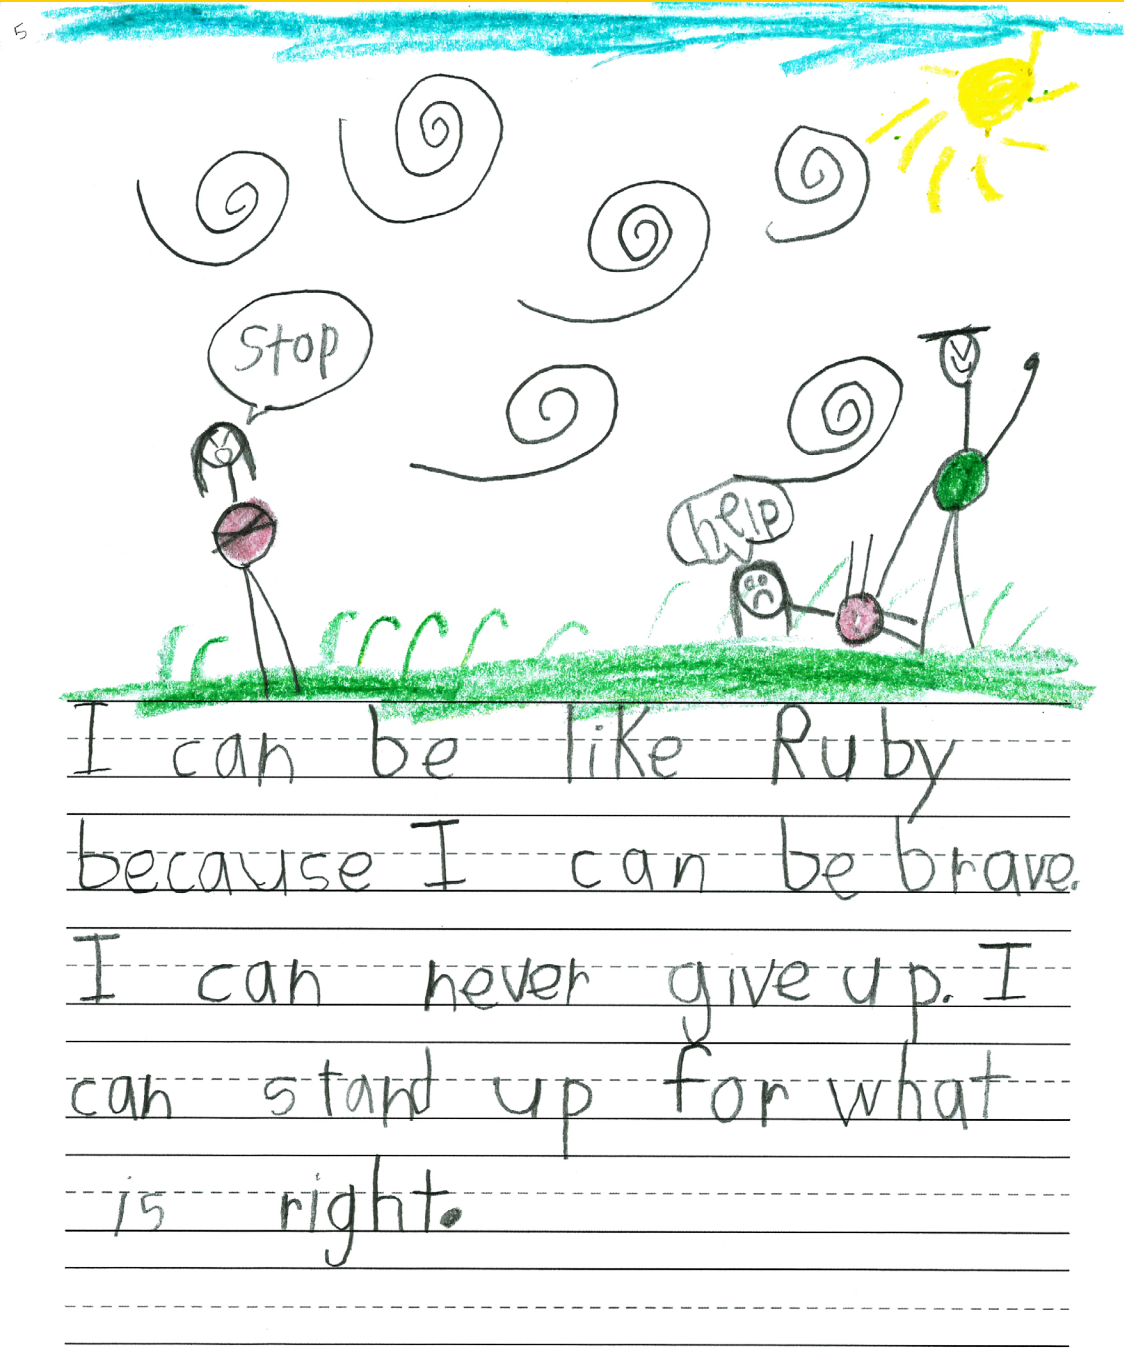 5
Stop
help
I can be like Ruby
because I can be brave.
I can never give up. I
can stand up for what
is right.